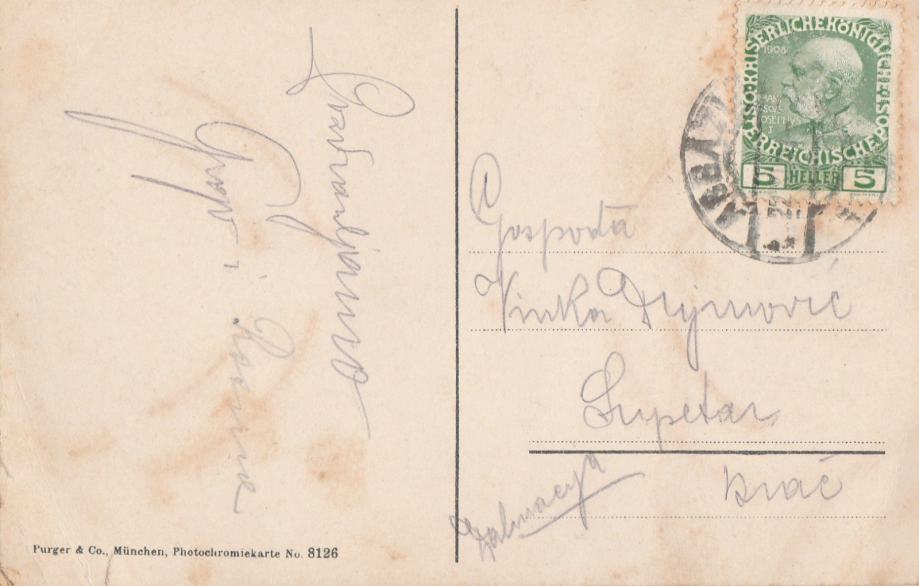 Pozdravljamo
i
Purger & Co., München, Photochromiekarte No. 8126
KAISERLICHE KÖNIGLICHE ÖSTERREICHISCHE POST
1908
5 HELLER 5
ABBAZIA
Gospođa
Vinka
Supetar
Brač
Dalmacija